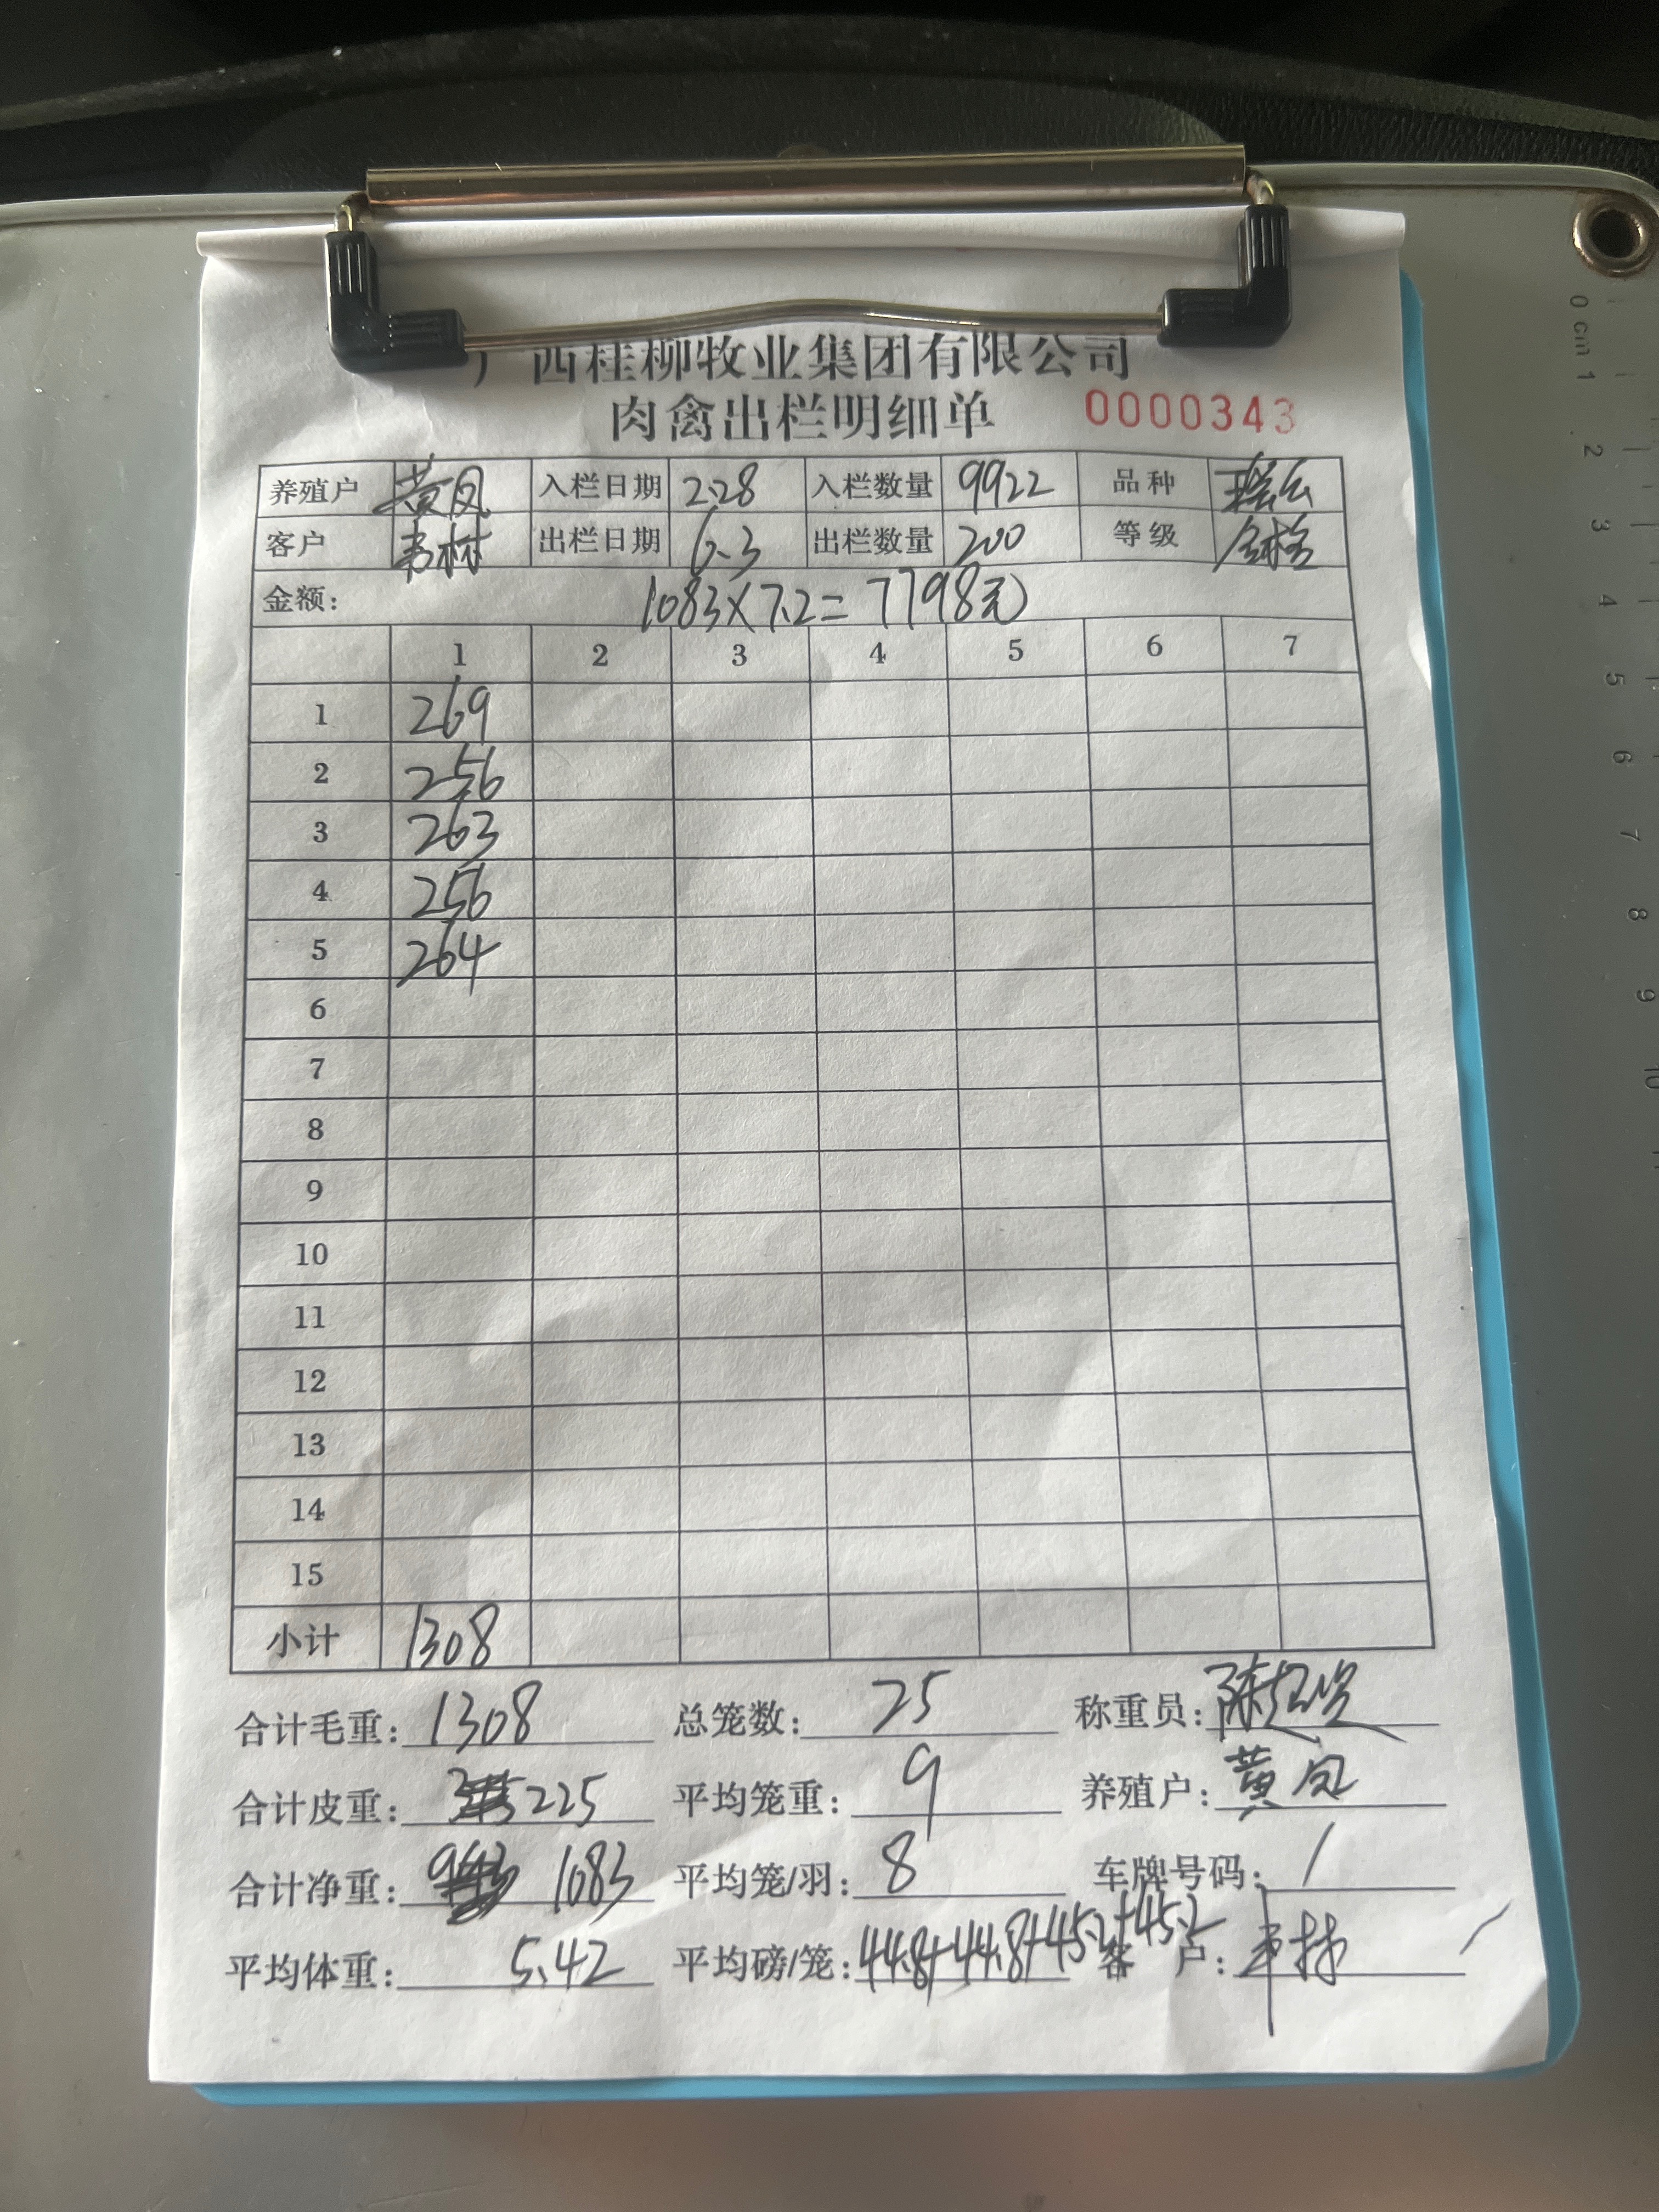 广西桂柳牧业集团有限公司
肉禽出栏明细单 0000343
养殖户 黄凤 入栏日期 2.28 入栏数量 9922 品种
客户 韦林 出栏日期 6.3 出栏数量 200 等级
金额: 1083×7.2=7798元
1 2 3 4 5 6 7
1 269
2 256
3 263
4 256
5 264
6
7
8
9
10
11
12
13
14
15
小计 1308
合计毛重: 1308 总笼数: 25 称重员:
合计皮重: 225 平均笼重: 9 养殖户: 黄凤
合计净重: 1083 平均笼/羽: 8 车牌号码: /
平均体重: 5.42 平均磅/笼: 44.8+44.8+45.2+45.2 客户: 韦林
0 cm 1 2 3 4 5 6 7 8 9 10